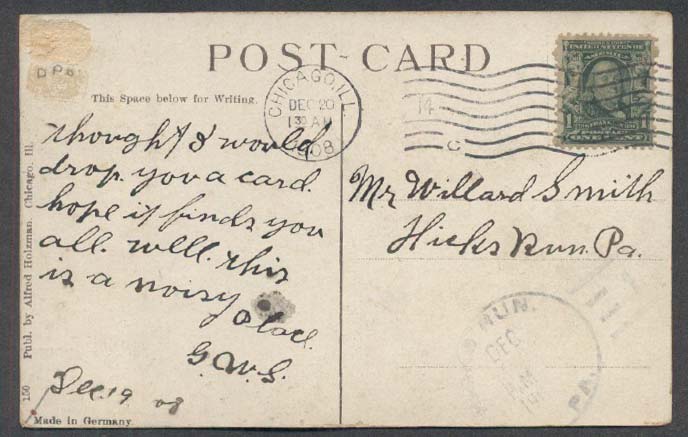 POST-CARD
D P B
This Space below for Writing.
CHICAGO, ILL.
DEC 20
1 30 AM
1908
14
C
UNITED STATES OF
1 1
POSTAGE
ONE CENT
thought I would
drop you a card.
hope it finds you
all. well. this
is a noisy
place.
G.W.S.
Dec. 19 08
Mr Willard Smith
Hicks Run. Pa.
RUN.
DEC
PA.
150 Publ. by Alfred Holzman. Chicago. Ill.
Made in Germany.